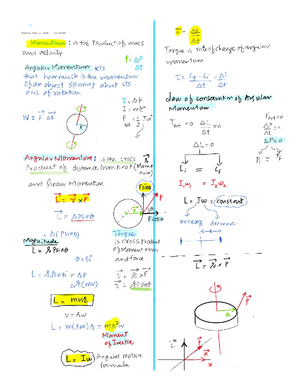 Momentum: is the Product of mass
and velocity
Angular Momentum tells
that how much is the momentum
of an object spinning about its
axis of rotation
Angular Momentum: is the cross
Product of distance from Pivot
and linear Momentum
L = r × P
= r(PsinΘ)
Magnitude
L = r PsinΘ
Θ = 90°
L = r Psin90 = rP
= r(mv)
L = mvr
V = rω
L = m(rω)r = mr²ω
Moment
of Inertia
L = Iω Angular motion
formula
Torque
is cross Product
of Moment arm
and force
PsinΘ
PcosΘ
τ = ΔL/Δt
Torque is rate of change of angular
momentum
τ = Lf - Li / Δt = ΔL/Δt
Law of conservation of Angular
Momentum
τext = 0 ΔL/Δt = 0
ΔL = 0
Li = Lf
I₁ω₁ = I₂ω₂
L = Iω = constant
increase decrease
L = r × P